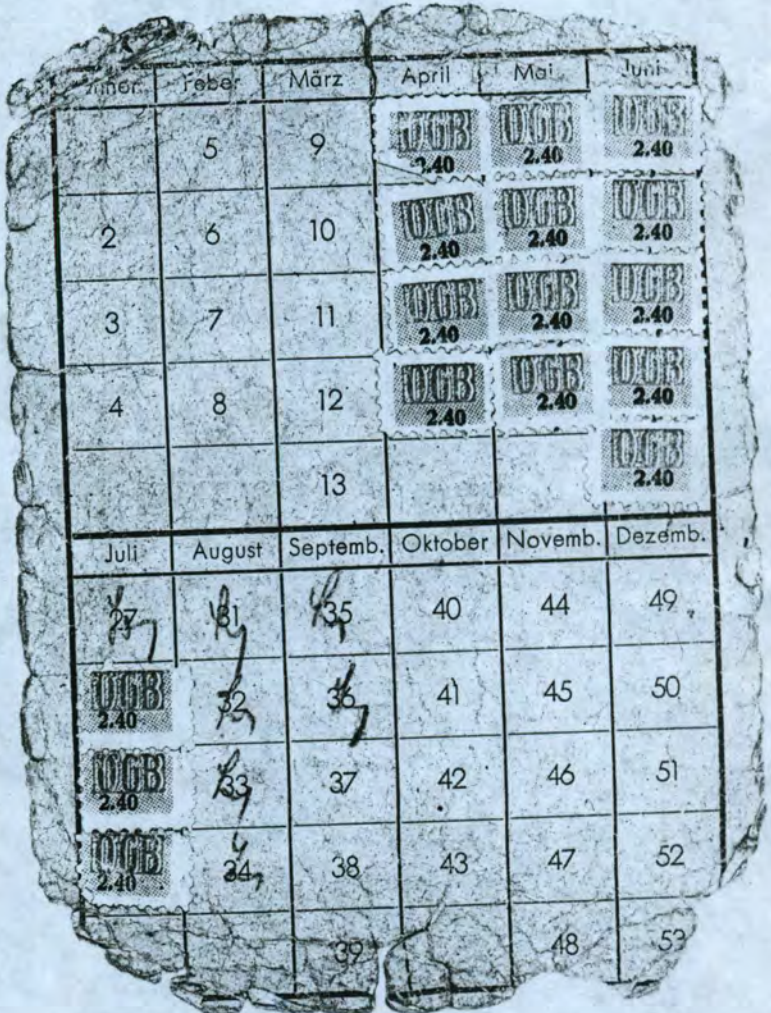 Feber März April Mai Juni
1 5 9 ÖGB 2.40 ÖGB 2.40 ÖGB 2.40
2 6 10 ÖGB 2.40 ÖGB 2.40 ÖGB 2.40
3 7 11 ÖGB 2.40 ÖGB 2.40 ÖGB 2.40
4 8 12 ÖGB 2.40 ÖGB 2.40 ÖGB 2.40
13 ÖGB 2.40
Juli August Septemb. Oktober Novemb. Dezemb.
27 31 35 40 44 49
ÖGB 2.40 32 36 41 45 50
ÖGB 2.40 33 37 42 46 51
ÖGB 2.40 34 38 43 47 52
39 48 53